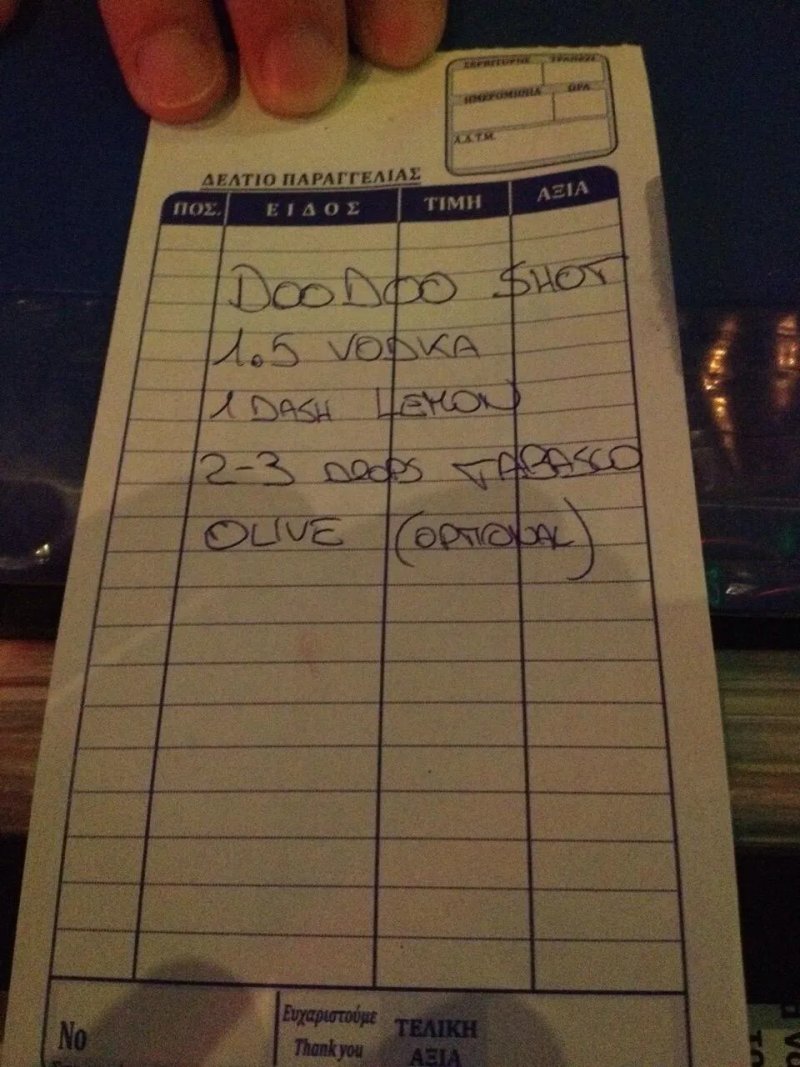 ΣΕΡΒΙΤΟΡΟΣ ΤΡΑΠΕΖΙ
ΗΜΕΡΟΜΗΝΙΑ ΩΡΑ
Α.Δ.Τ.Μ.
ΔΕΛΤΙΟ ΠΑΡΑΓΓΕΛΙΑΣ
ΠΟΣ. ΕΙΔΟΣ ΤΙΜΗ ΑΞΙΑ
DOODOO SHOT
1.5 VODKA
1 DASH LEMON
2-3 DROPS TABASCO
OLIVE (OPTIONAL)
No
Ευχαριστούμε
Thank you
ΤΕΛΙΚΗ
ΑΞΙΑ